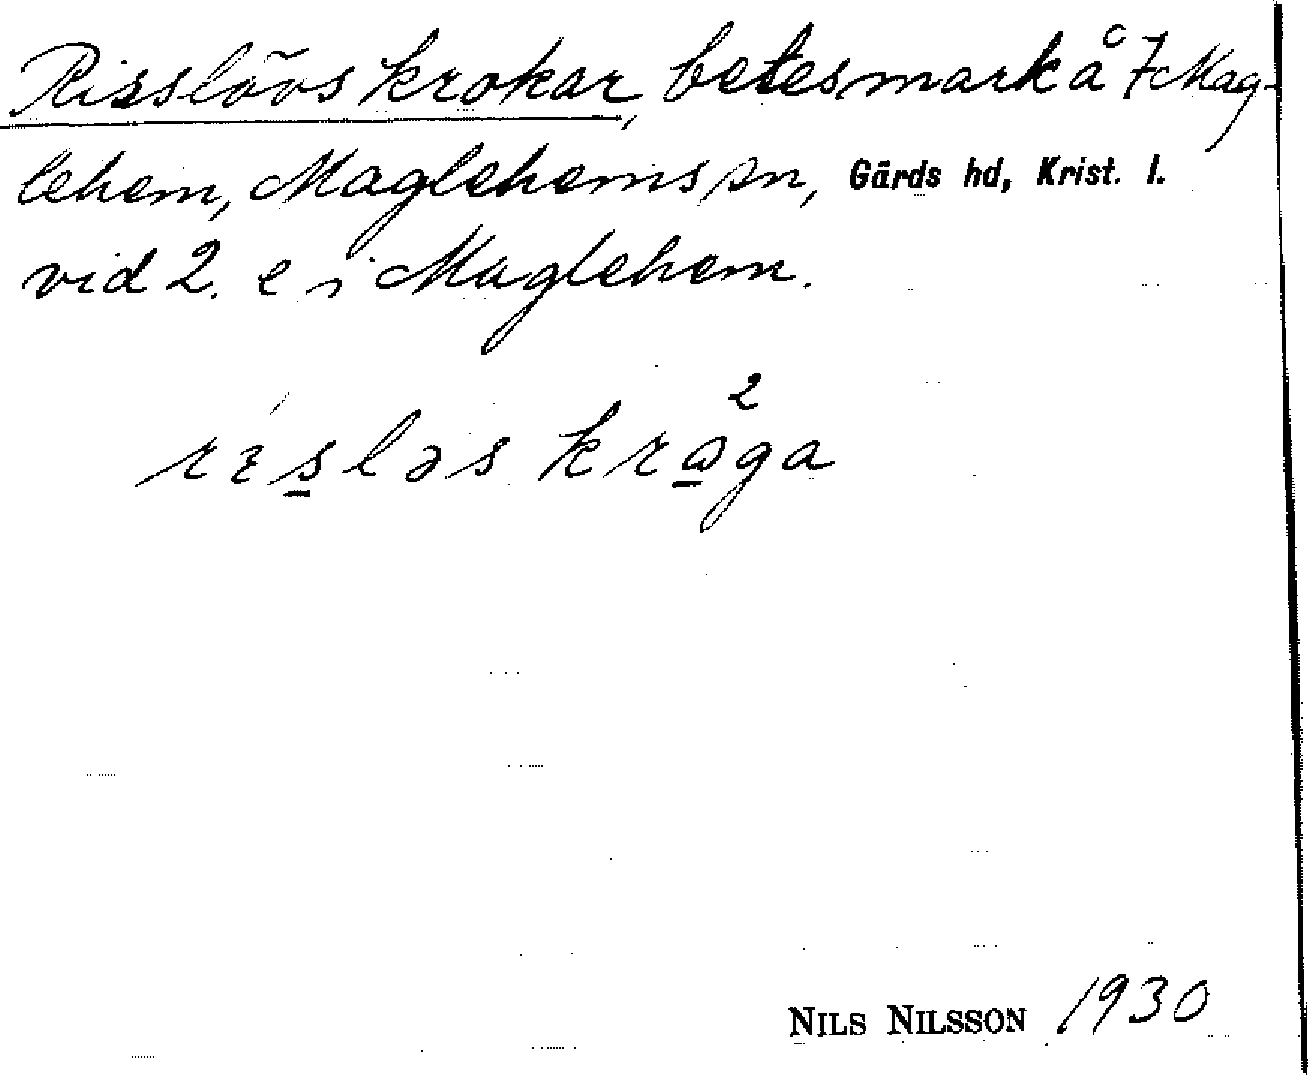 Risslövs krokar, betesmark å 7 Mag-
lehem, Maglehems sn, Gärds hd, Krist. l.
vid 2. e i Maglehem.
2
rɪs̲ləs krω̲ga
NILS NILSSON 1930